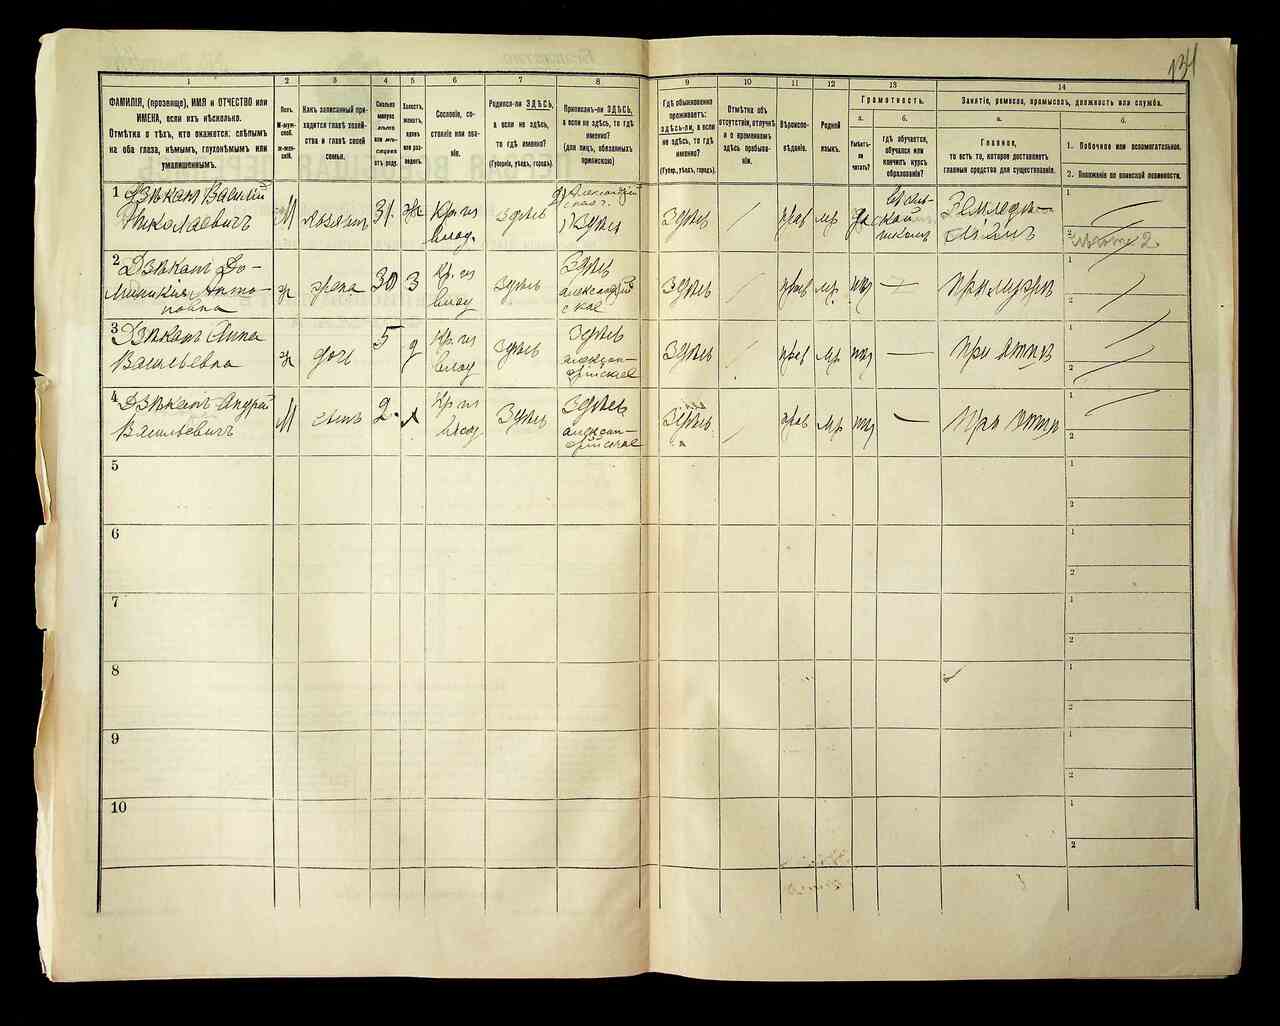 134
1
2
3
4
5
6
7
8
9
10
11
12
13
14
ФАМИЛІЯ, (прозвище), ИМЯ и ОТЧЕСТВО или
ИМЕНА, если ихъ нѣсколько.
Отмѣтка о тѣхъ, кто окажется: слѣпымъ
на оба глаза, нѣмымъ, глухонѣмымъ или
умалишеннымъ.
Полъ.
М-муж-
ской.
Ж-жен-
скій.
Какъ записанный при-
ходится главѣ хозяй-
ства и главѣ своей
семьи.
Сколько
минуло
лѣтъ
или мѣ-
сяцевъ
отъ роду.
Холостъ,
женатъ,
вдовъ
или раз-
веденъ.
Сословіе, со-
стояніе или зва-
ніе.
Родился-ли ЗДѢСЬ,
а если не здѣсь,
то гдѣ именно?
(Губернія, уѣздъ, городъ).
Приписанъ-ли ЗДѢСЬ,
а если не здѣсь, то гдѣ
именно?
(для лицъ, обязанныхъ
припискою)
Гдѣ обыкновенно
проживаетъ:
здѣсь-ли, а если
не здѣсь, то гдѣ
именно?
(Губер., уѣздъ, городъ).
Отмѣтка объ
отсутствіи, отлучкѣ
и о временномъ
здѣсь пребыва-
ніи.
Вѣроиспо-
вѣданіе.
Родной
языкъ.
Грамотность.
а.
б.
Умѣетъ-
ли
читать?
гдѣ обучается,
обучался или
кончилъ курсъ
образованія?
Занятіе, ремесло, промыселъ, должность или служба.
а.
б.
Главное,
то есть то, которое доставляетъ
главныя средства для существованія.
1. Побочное или вспомогательное.
2. Положеніе по воинской повинности.
1 Дзѣканъ Василій
Николаевичъ
М
хозяинъ
31
жн
Кр. из
влад.
здѣсь
1) Здѣсь
Здѣсь
прав
мр
да
сель
ской
школѣ
Земледѣ-
1
2
2
2 Дзѣканъ До-
миникія Анто-
новна
ж
жена
30
З
Кр. из
влад
здѣсь
Здѣсь
александрій
ское
Здѣсь
прав
мр
нтъ
—
При мужѣ
1
2
3 Дзѣканъ Анна
Васильевна
ж
дочь
5
д
Кр. из
влад
здѣсь
Здѣсь
алексан-
дрійское
Здѣсь
прав
мр
нтъ
—
При отцѣ
1
2
4 Дзѣканъ Андрей
Васильевичъ
М
сынъ
2
х
Кр из
влад
Здѣсь
Здѣсь
алексан-
дрійское
Здѣсь
прав
мр
нтъ
—
При отцѣ
1
2
5
1
2
6
1
2
7
1
2
8
1
2
9
1
2
10
1
2